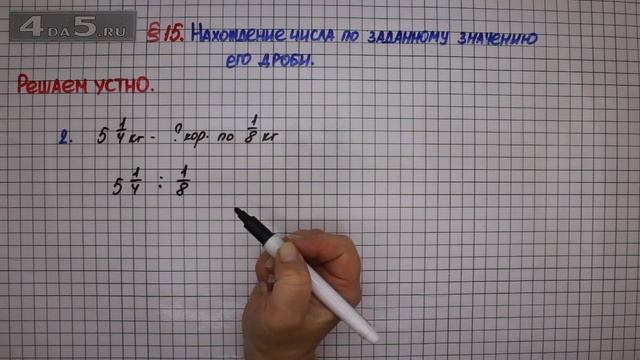 4DA5.RU
§ 15. Нахождение числа по заданному значению
его дроби.
Решаем устно.
2. 5 1/4 кг - ? кор. по 1/8 кг
5 1/4 : 1/8